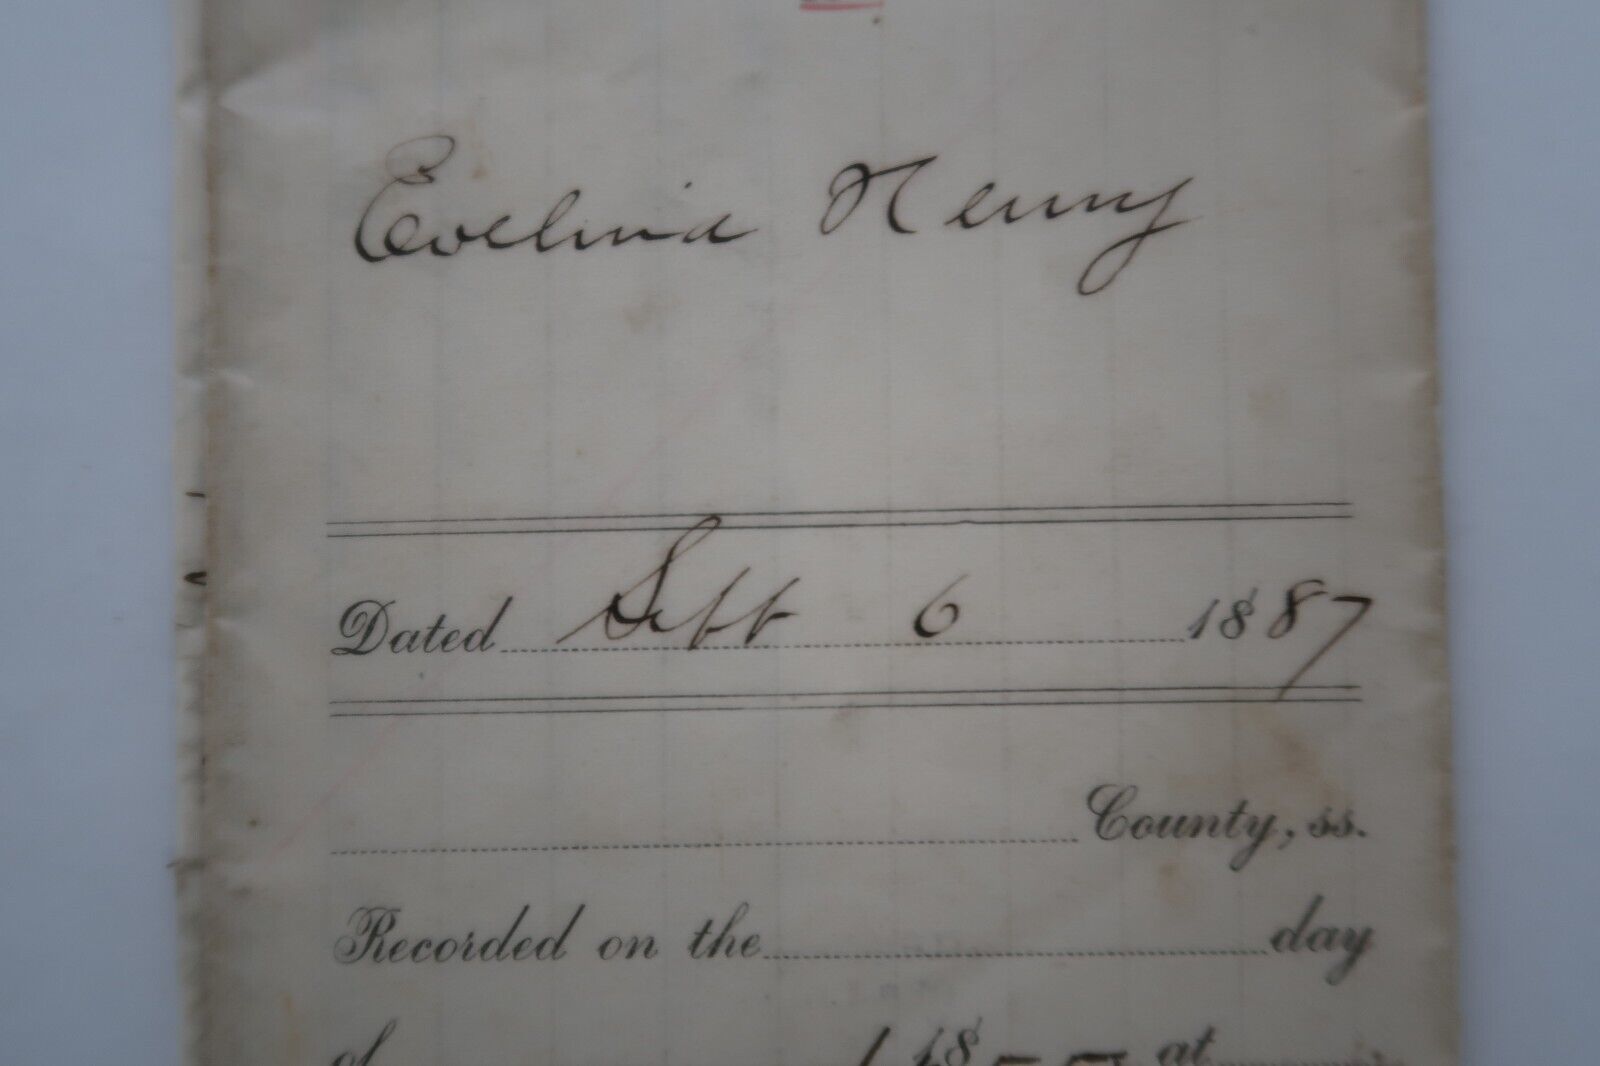 Evelina Henry
Dated Sept 6 1887
County, ss.
Recorded on the day
of 18 at